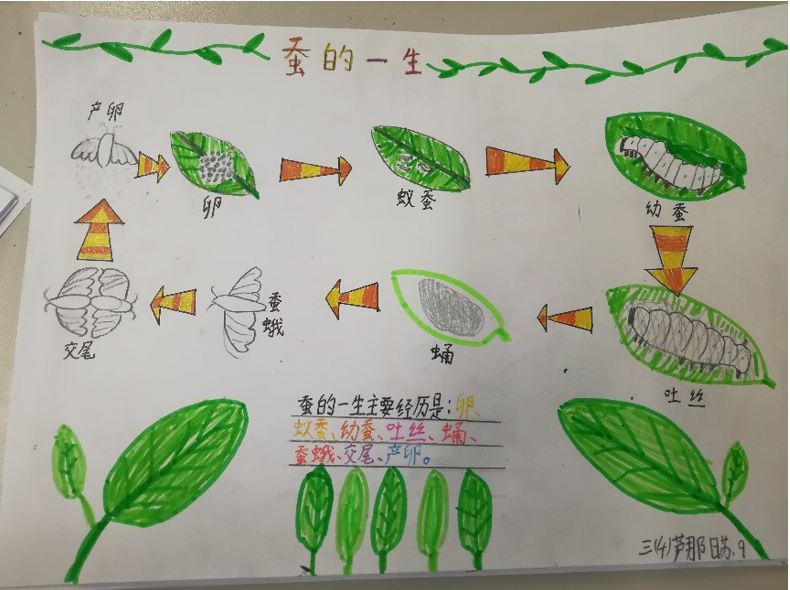 蚕的一生
产卵
卵
蚁蚕
幼蚕
蚕
蛾
蛹
交尾
吐丝
蚕的一生主要经历是:卵、
蚁蚕、幼蚕、吐丝、蛹、
蚕蛾、交尾、产卵。
三(4)芦那 9